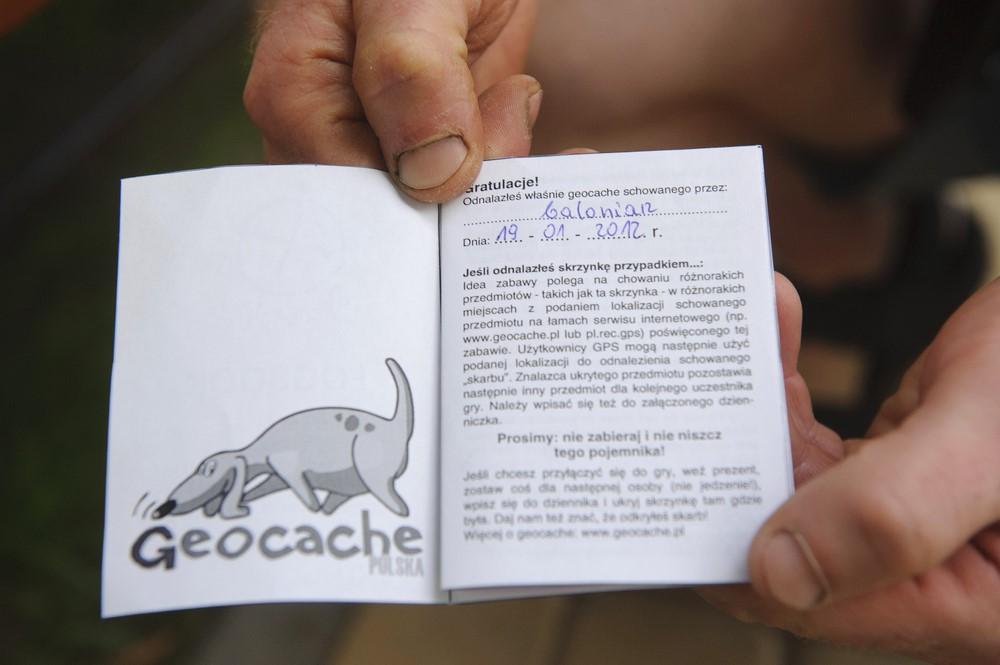 Geocache
POLSKA
Gratulacje!
Odnalazłeś właśnie geocache schowanego przez:
baloniarz
Dnia: 19 - 01 - 2012 r.
Jeśli odnalazłeś skrzynkę przypadkiem...:
Idea zabawy polega na chowaniu różnorakich
przedmiotów - takich jak ta skrzynka - w różnorakich
miejscach z podaniem lokalizacji schowanego
przedmiotu na łamach serwisu internetowego (np.
www.geocache.pl lub pl.rec.gps) poświęconego tej
zabawie. Użytkownicy GPS mogą następnie użyć
podanej lokalizacji do odnalezienia schowanego
„skarbu". Znalazca ukrytego przedmiotu pozostawia
następnie inny przedmiot dla kolejnego uczestnika
gry. Należy wpisać się też do załączonego dzien-
niczka.
Prosimy: nie zabieraj i nie niszcz
tego pojemnika!
Jeśli chcesz przyłączyć się do gry, weź prezent,
zostaw coś dla następnej osoby (nie jedzenie!),
wpisz się do dziennika i ukryj skrzynkę tam gdzie
była. Daj nam też znać, że odkryłeś skarb!
Więcej o geocache: www.geocache.pl